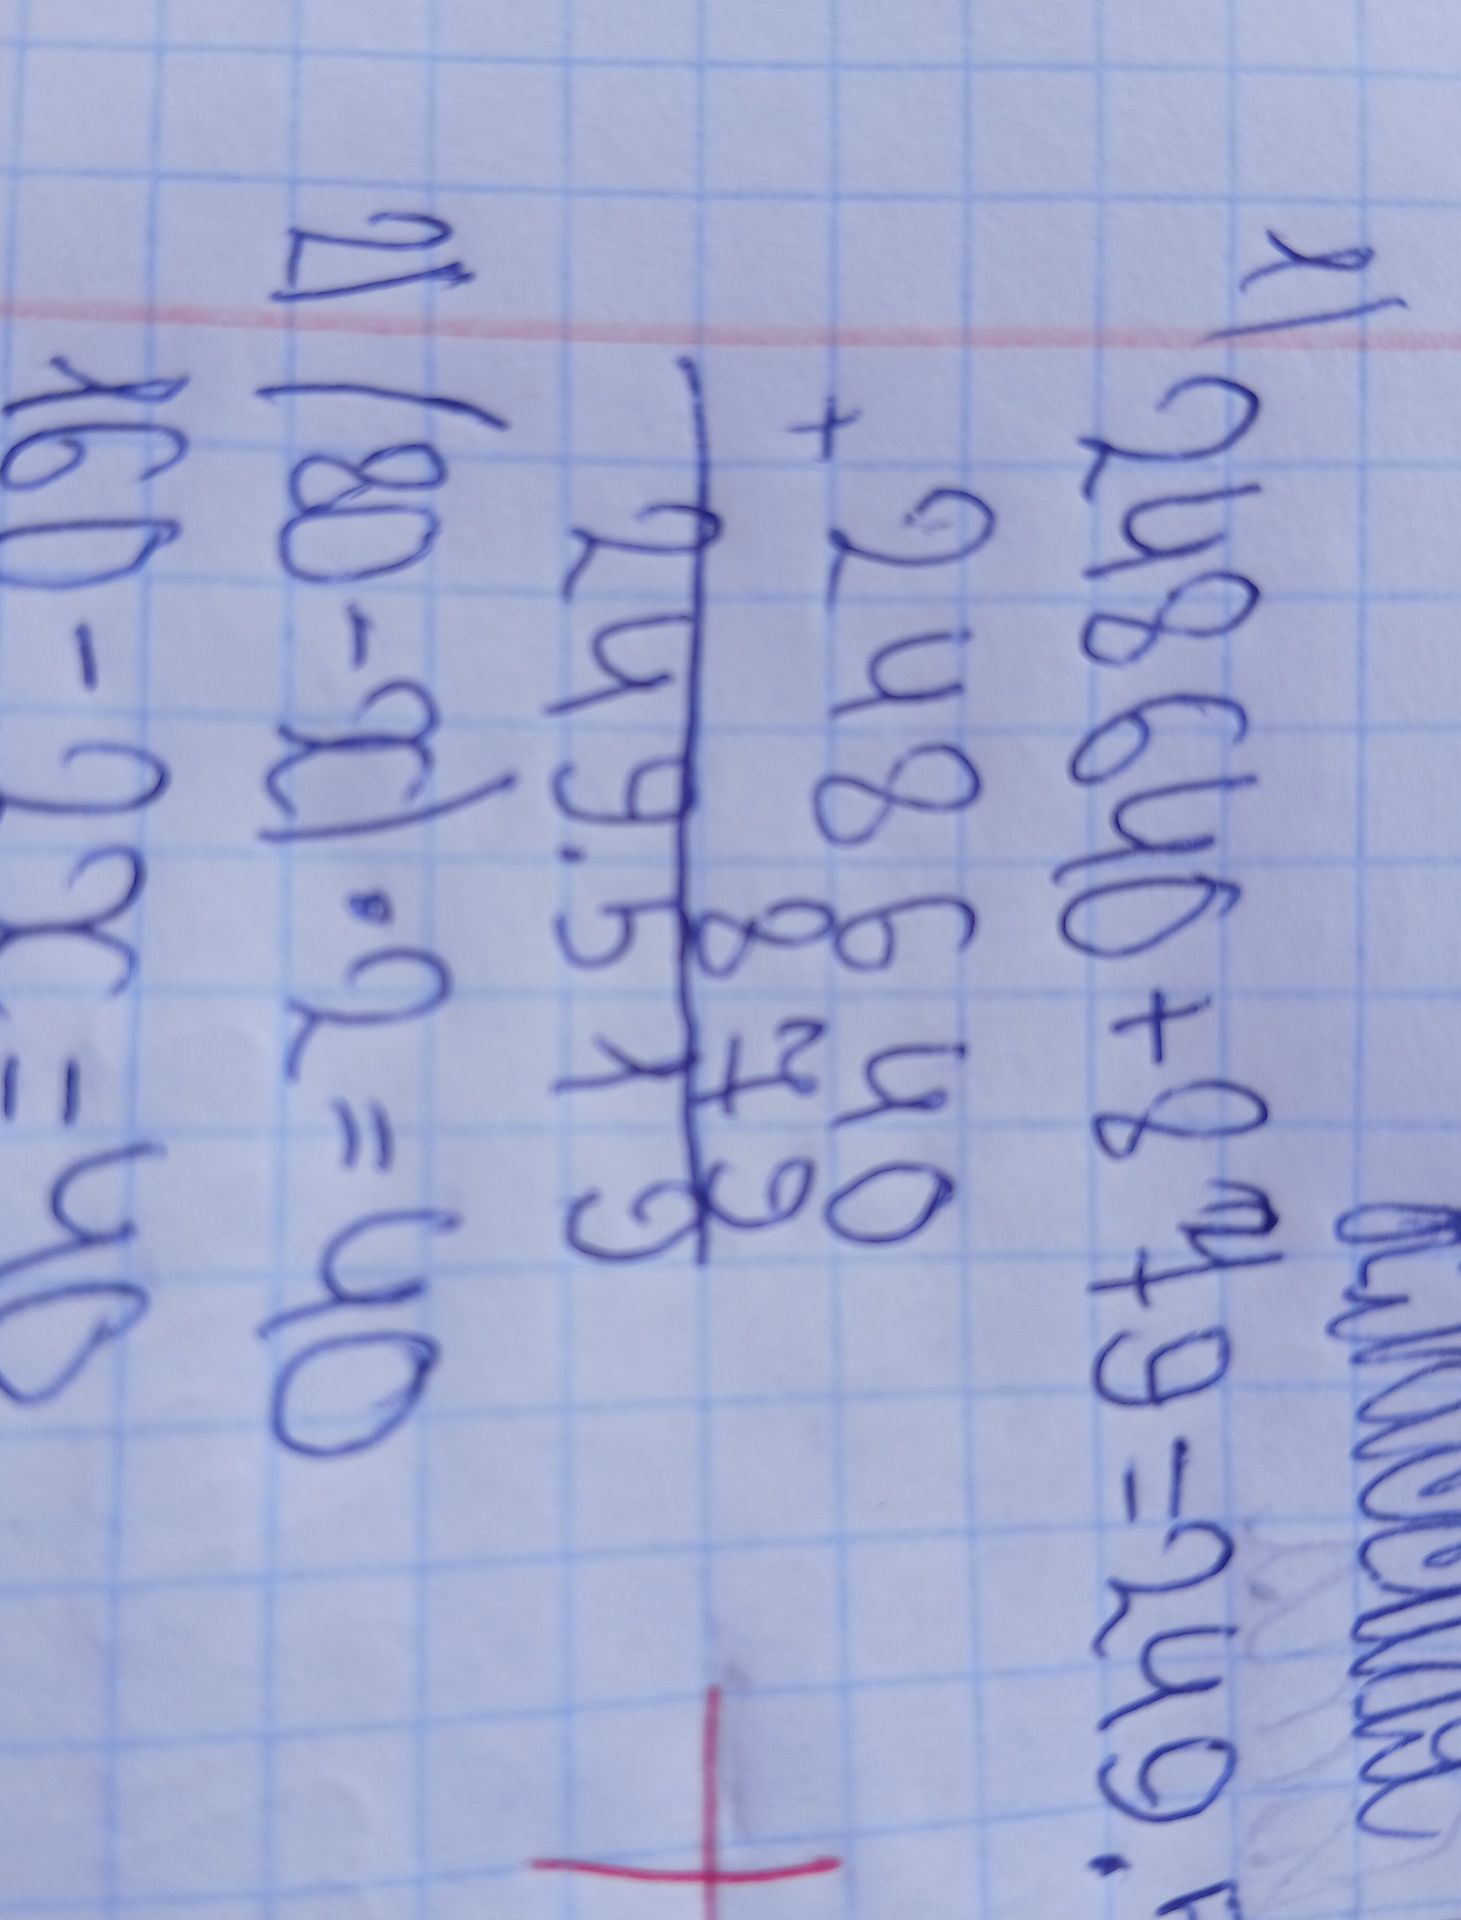 1) 248640+879=249.5
+ 248640
879
249.519
2) (80-x)·2=40
160-2x=40